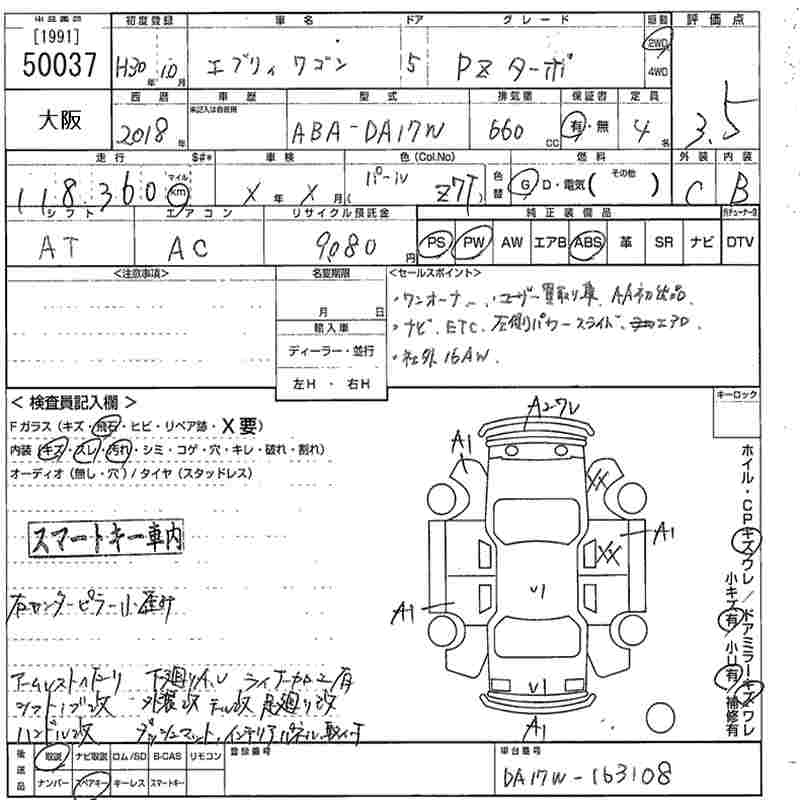 [1991]
50037
初度登録
車名
ドア
グレード
駆動
評価点
H30 年 10 月
エブリィワゴン
5
PZターボ
2WD
4WD
3.5
大阪
西暦
車歴
型式
排気量
保証書
定員
2018 年
未記入は自家用
ABA-DA17W
660 CC
有・無
4 名
走行
$#*
車検
色(Col.No)
色替
燃料
外装
内装
118,360
マイル
km
X 年 X 月
パール
Z7T
G・D・電気( その他 )
C
B
シフト
エアコン
リサイクル預託金
純正装備品
AT
AC
9080 円
PS
PW
AW
エアB
ABS
革
SR
ナビ
DTV
<注意事項>
名変期限
月 日
輸入車
ディーラー・並行
左H・右H
<セールスポイント>
・ワンオーナー、ユーザー買取り車 AA初出品
・ナビ ETC 左側パワースライド
エアロ
・社外16AW
キーロック
<検査員記入欄>
Fガラス(キズ・飛石・ヒビ・リペア跡・X要)
内装(キズ・スレ・汚れ・シミ・コゲ・穴・キレ・破れ・割れ)
オーディオ(無し・穴)/タイヤ(スタッドレス)
スマートキー車内
右センターピラー小歪み
下廻りサビ
シフトノブ改
外装改
足廻り改
ハンドル改
ダッシュマット、インテリアパネル取付
A2-ワレ
A1
XX
A1
XX
A1
U1
U1
A1
ホイル・CPキズワレ/ドアミラーキズワレ
小キズ有/小U有/補修有
後送品
取説
ナビ取説
ロム/SD
B-CAS
リモコン
ナンバー
スペアキー
キーレス
スマートキー
登録番号
車台番号
DA17W-163108